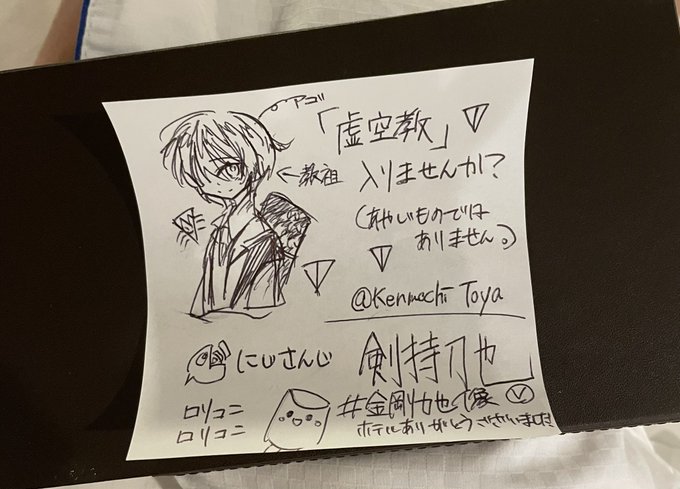 アゴ
「虚空教」
←教祖
入りませんか?
(あやしいものでは
ありません。)
@Kenmochi Toya
にじさんじ
剣持刀也
ロリコニ
ロリコニ
#金剛力也像
ホテルありがとうございました